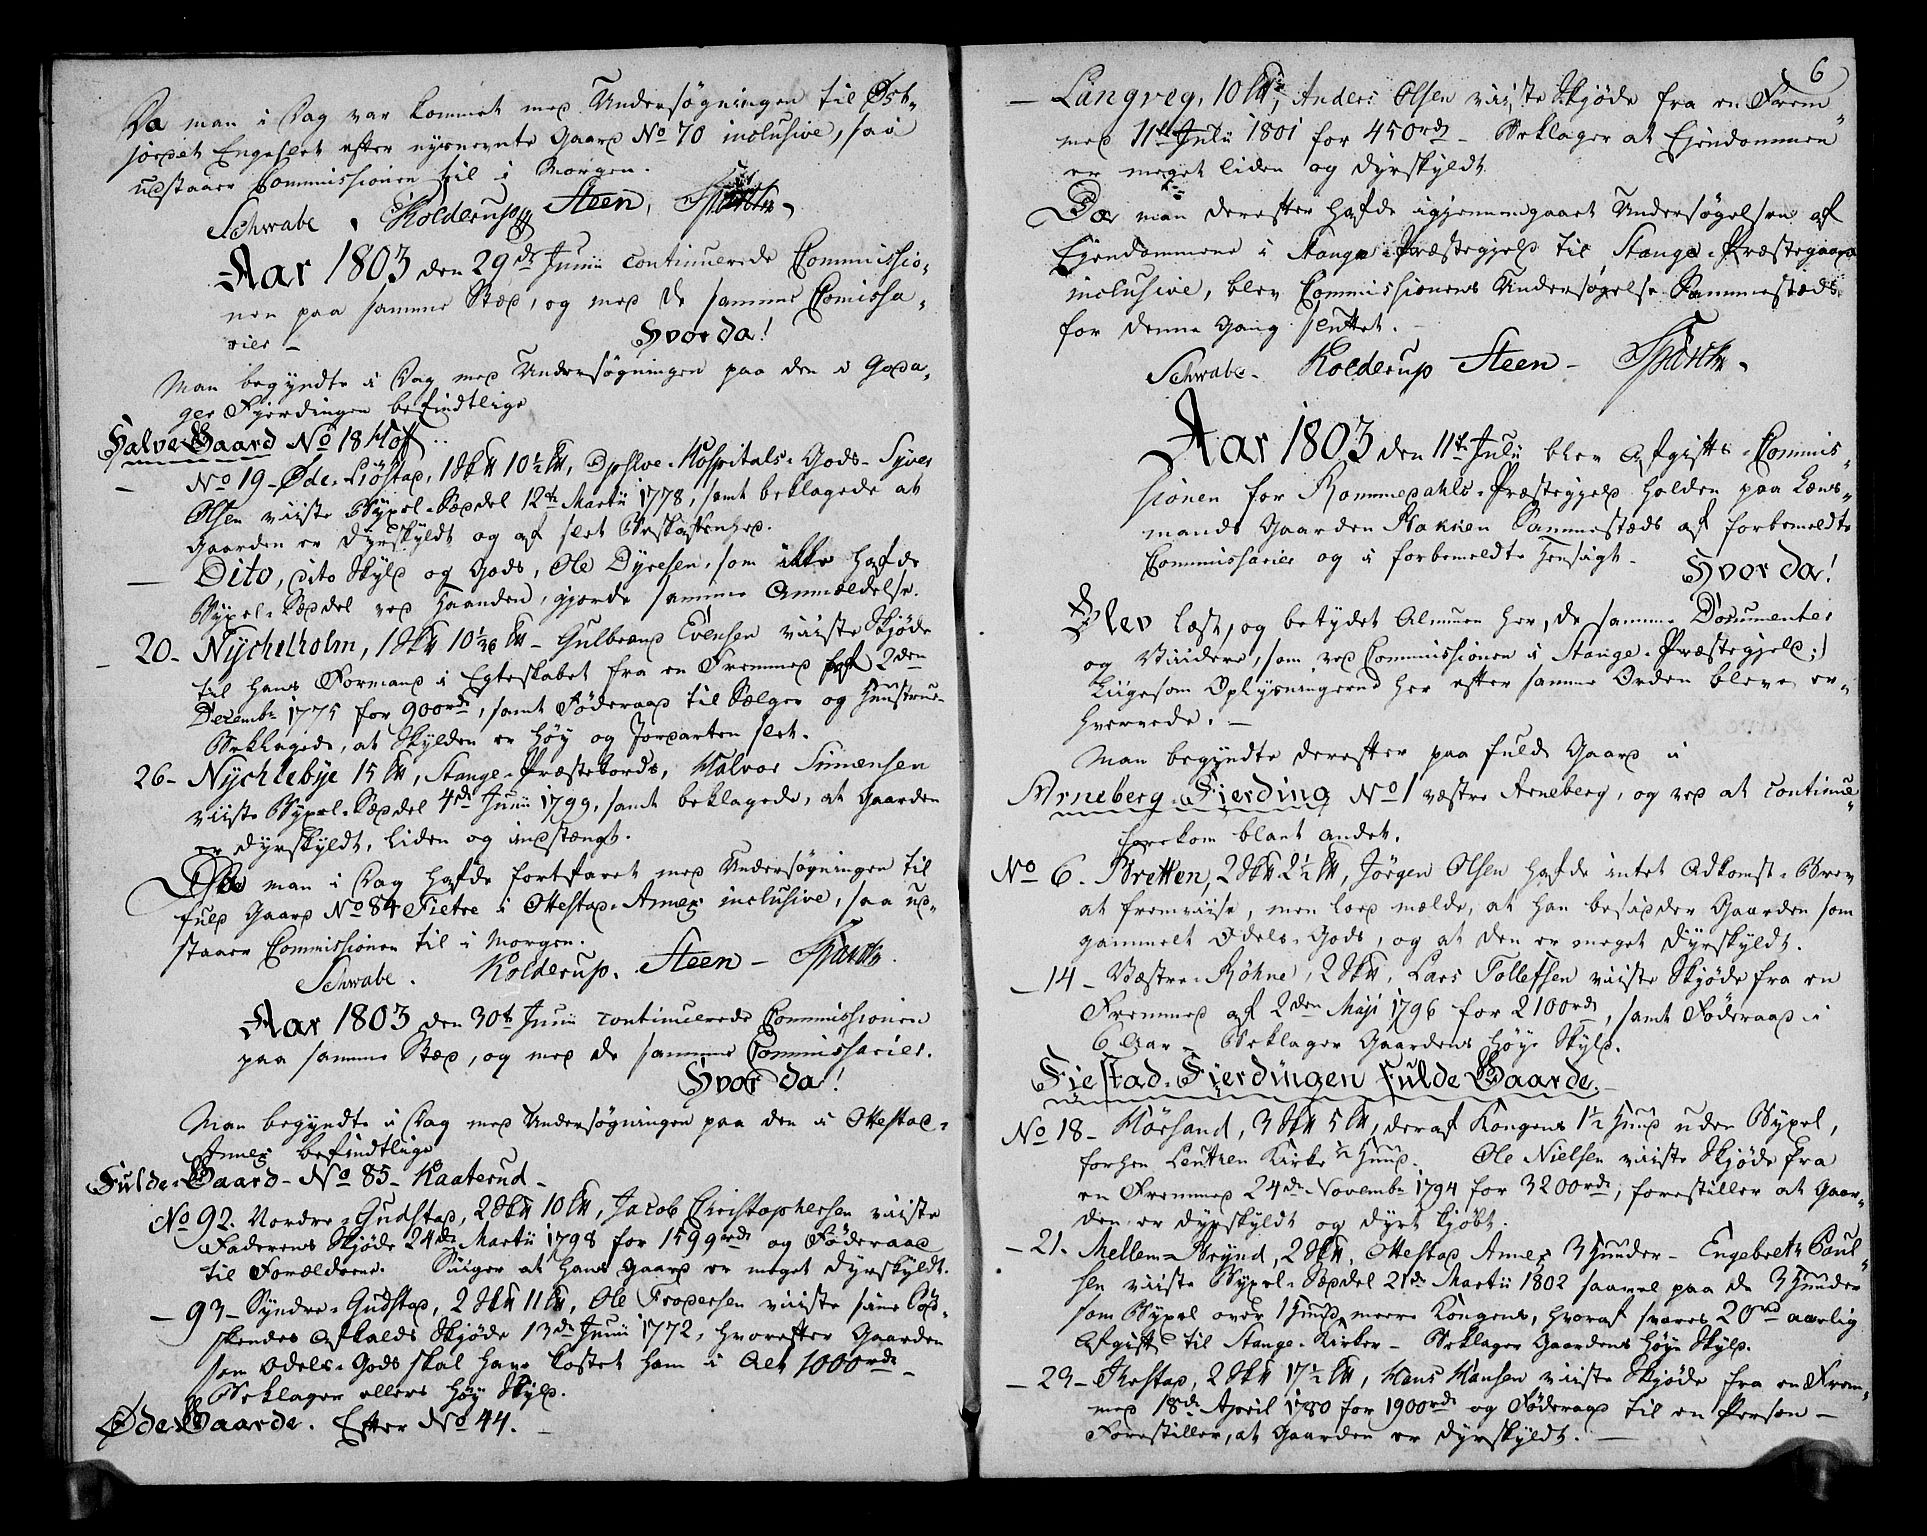 Da man i Dag var kommet med Undersøgningen til Øst-
jordet Engeslet efter nysnevnte Gaard No 70 inclusive, saa
udstaaer Commissionen til i Morgen.
Schwabe, Kolderup Steen,
Aar 1803 den 29de Junii continuerede Commissio-
nen paa samme Stæd, og med de samme Comissa-
rier –
Hvorda!
Man begyndte i Dag med Undersøgningen paa den i Goda-
ger Fjerdingen befindtlige
Halve Gaard No 18 Hoff
– No 19 – Øde-Liøstad, 1 Skπ 10½ Lπ, Opslve-Hospitals-Gods – Syver
Olsen viiste Bygsel-Sæddel 12te Martii 1778, samt beklagede at
Gaarden er dyrskyldt og af slet Beskaffenhed.
– Dito, dito Skyld og Gods, Ole Dyresen, som ikke hafde
Bygsel-Sæddel ved Haanden, gjorde samme Anmeldelse.
– 20 – Nychelholm, 1 Skπ 10½ Lπ – Gulbrand Evensen viiste Skjøde
til hans Formand i Egteskabet fra en Fremmed af 2den
Decembr 1775 for 900rd, samt Føderaad til Sælger og Hustrue
Beklagede, at Skylden er høy og Jordarten slet.
26 – Nychlebye 15 Lπ, Stange-Præstebords, Halvor Simensen
viiste Bygsel-Sæddel 4de Junii 1799, samt beklagede, at Gaarden
er dyrskyldt, liden og indstængt.
Da man i Dag hafde fortfaret med Undersøgningen til
fuld Gaard No 84 Tietre i Ottestad-Annex inclusive, saa ud-
staaer Commissionen til i Morgen.
Schwabe. Kolderup. Steen –
Aar 1803 den 30te Junii continuerede Commissionen
paa samme Stæd, og med de samme Commissarier.
Hvorda!
Man begyndte i Dag med Undersøgningen paa den i Ottestad-
Annex befindtlige
Fulde-Gaard – No 85 – Kaaterud –
No 92. Nordre-Gudstad, 2 Skπ 10 Lπ, Jacob Christophersen viiste
Faderens Skjøde 24de Martii 1798 for 1599rd og Føderaad
til Forældrene. Siiger at hans Gaard er meget dyrskyldt.
– 93 – Syndre-Gudstad, 2 Skπ 11 Lπ, Ole Frodersen viiste sine Sød-
skendes Afkalds Skjøde 13de Junii 1772, hvorefter Gaarden
som Odels-Gods skal have kostet ham i Alt 1000rd –
Beklager ellers høy Skyld.
Øde Gaarde. Efter No 44. –
6
– Langveg, 10 Lπ, Anders Olsen viiste Skjøde fra en Frem-
med 11te Julii 1801 for 450rd – Beklager at Ejendommen
er meget liden og dyrskyldt
Da man derefter hafde igjennemgaaet Undersøgelsen af
Ejendommene i Stange-Præstegjeld til Stange-Præstegaard
inclusive, blev Commissionens Undersøgelse Sammestæds
for denne Gang sluttet. –
Schwabe – Kolderup Steen –
Aar 1803 den 11te Julii blev Afgifts-Commis-
sionen for Rommedahls-Præstegjeld holden paa Lens-
mands Gaarden Stakken Sammestæds af forbemeldte
Commissarier og i forbemeldte Hensigt –
Hvorda!
Blev læst, og betydet Almuen her, de samme Documenter
og Viidere, som ved Commissionen i Stange-Præstegjeld;
Liigesom Oplysningerne her efter samme Orden bleve er-
hvervede. –
Man begyndte derefter paa fuld Gaard i
Arneberg-Fierding No 1 væstre Arneberg, og ved at continue-
forekom blant andet.
No 6. Bretten, 2 Skπ 2½ Lπ, Jørgen Olsen hafde intet Adkomst-Brev
at fremviise, men lod mælde, at han besidder Gaarden som
gammelt Odels-Gods, og at den er meget dyrskyldt.
– 14 – Væstre-Røhne, 2 Skπ, Lars Tollefsen viiste Skjøde fra en
Fremmed af 2den Maji 1796 for 2100rd, samt Føderaad i
6 Aar – Beklager Gaardens høye Skyld.
Fiestad-Fierdingen Fulde Gaarde. –
No 18 – Hørsand, 3 Skπ 5 Lπ, deraf Kongens 1½ Hud uden Bygsel,
forhen Leuthen Kirke ½ Hud. Ole Nielsen viiste Skjøde fra
en Fremmed 24de Novembr 1794 for 3200rd, forestiller at Gaar-
den er dyrskyldt og dyrt kjøbt.
– 21. Mellem-Brynd, 2 Skπ, Ottestad Annex 3 Huuder – Engebreth Poul-
sen viiste Bygsel-Sæddel 21de Martii 1802 saavel paa de 3 Huuder
som Bygsel over 1 Huud meere Kongens, hvoraf svares 20rd aarlig
Afgift til Stange-Kirker – Beklager Gaardens høye Skyld.
– 29 – Ihestad, 2 Skπ 17½ Lπ, Hans Hansen viiste Skjøde fra en Frem-
med 18de April 1780 for 1900rd og Føderaad til en Person –
Forestiller, at Gaarden er dyrskyldt. –